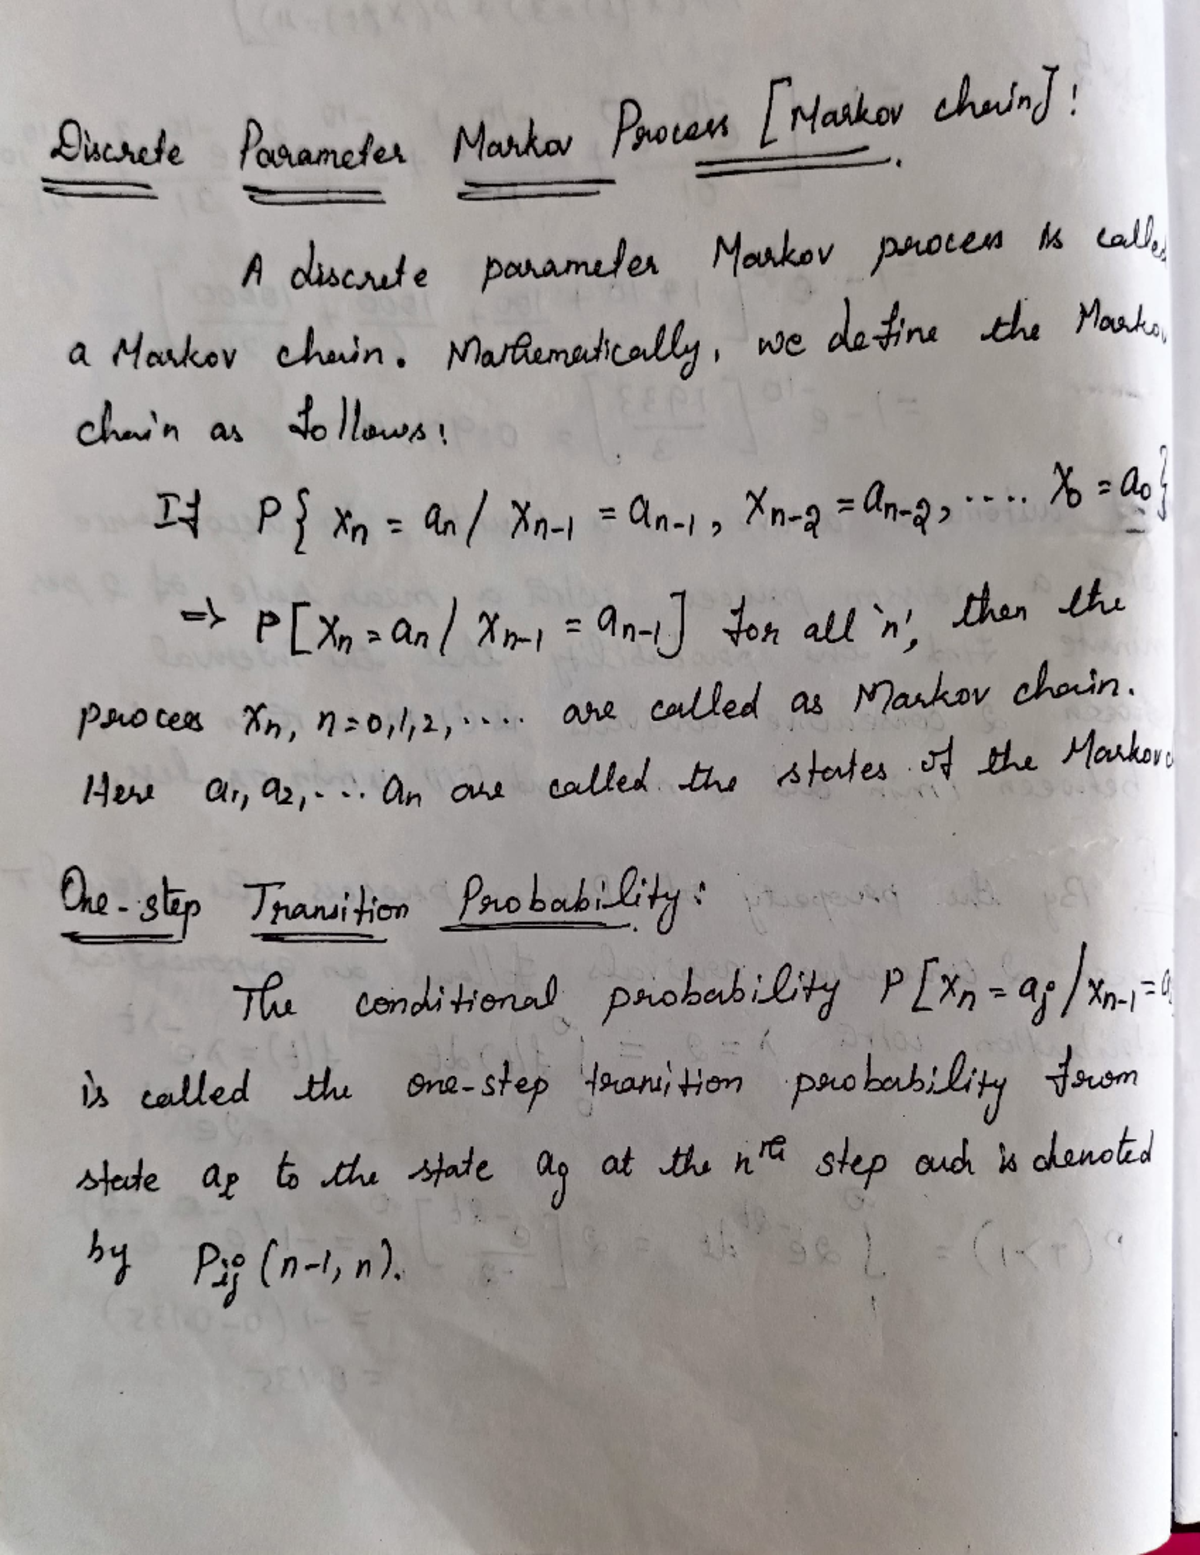 Discrete Parameter Markov Process [Markov chain]:
A discrete parameter Markov process is called
a Markov chain. Mathematically, we define the Markov
chain as follows:
If P{ Xn = an / Xn-1 = an-1, Xn-2 = an-2, .... X0 = a0}
=> P[Xn = an / Xn-1 = an-1] for all 'n', then the
process Xn, n=0,1,2, .... are called as Markov chain.
Here a1, a2, ... an are called the states of the Markov
One-step Transition Probability:
The conditional probability P[Xn = aj / Xn-1 = a
is called the one-step transition probability from
state ai to the state aj at the nth step and is denoted
by Pij (n-1, n).